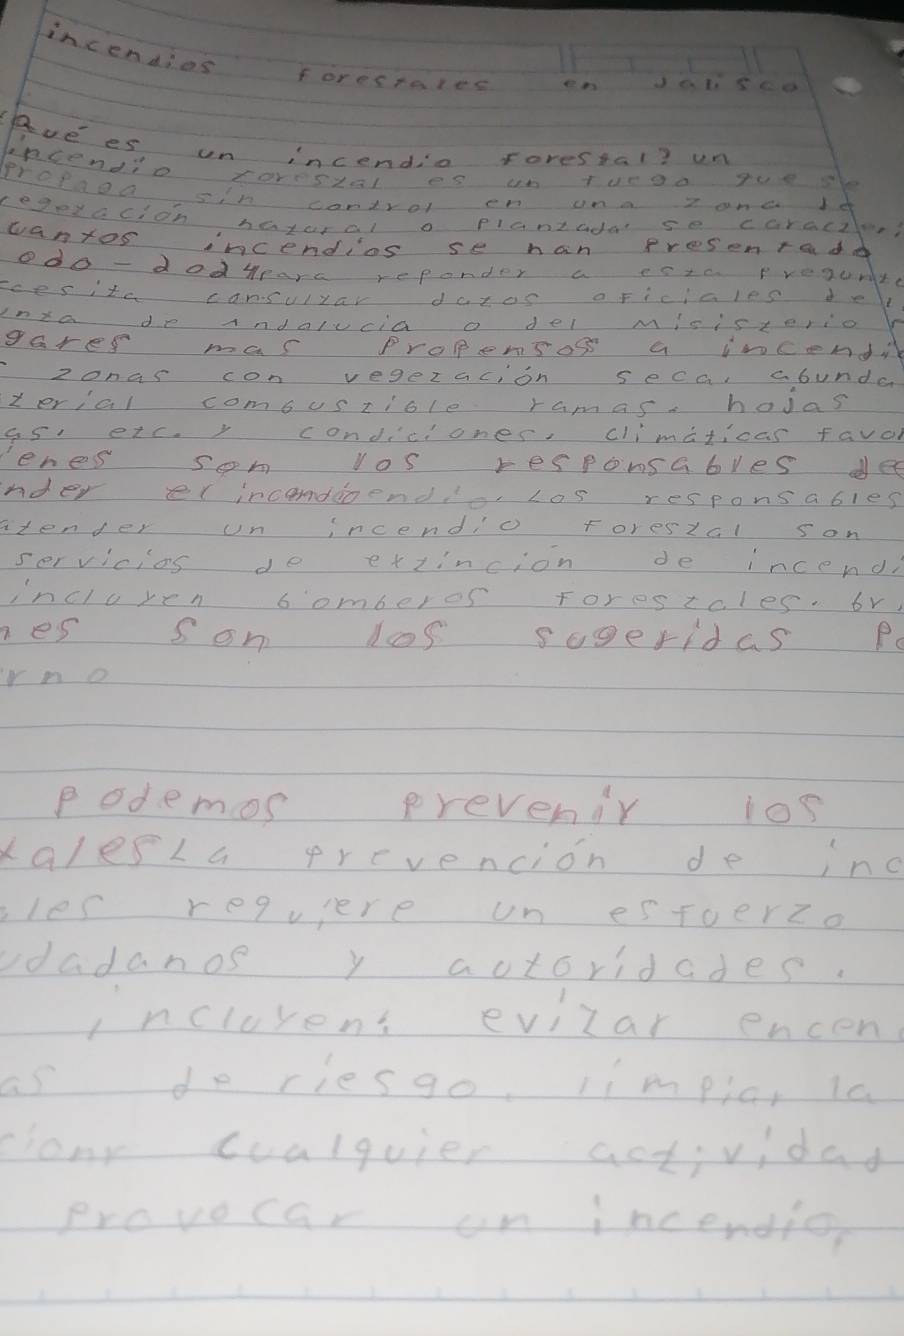 incendios forestales en Jalisco
¿Qué es un incendio forestal? un
incendio forestal es un fuego que se
propaga sin control en una zona de
vegetación natural o plantada. se caracteri
uantos incendios se han presentado
odo - 2024 para reponder a esta pregunta
ecesita consultar datos oficiales del
unta de Andalucia o del Misisterio
gares mas propensos a incendio
zonas con vegetación seca, abunda
terial combustible ramas. hojas
as, etc. y condiciones. climáticas favor
ienes son los responsables de
nder el Los responsables
atender un incendio forestal son
servicios de extinción de incendi
incluyen bomberos forestales. br
nes son los sugeridas po
rno
podemos prevenir los
tales La prevención de inc
ales requiere un esfuerzo
udadanos y autoridades.
incluyen: evitar encen
as de riesgo, limpiar la
cionr cualquier actividad
provocar un incendio.